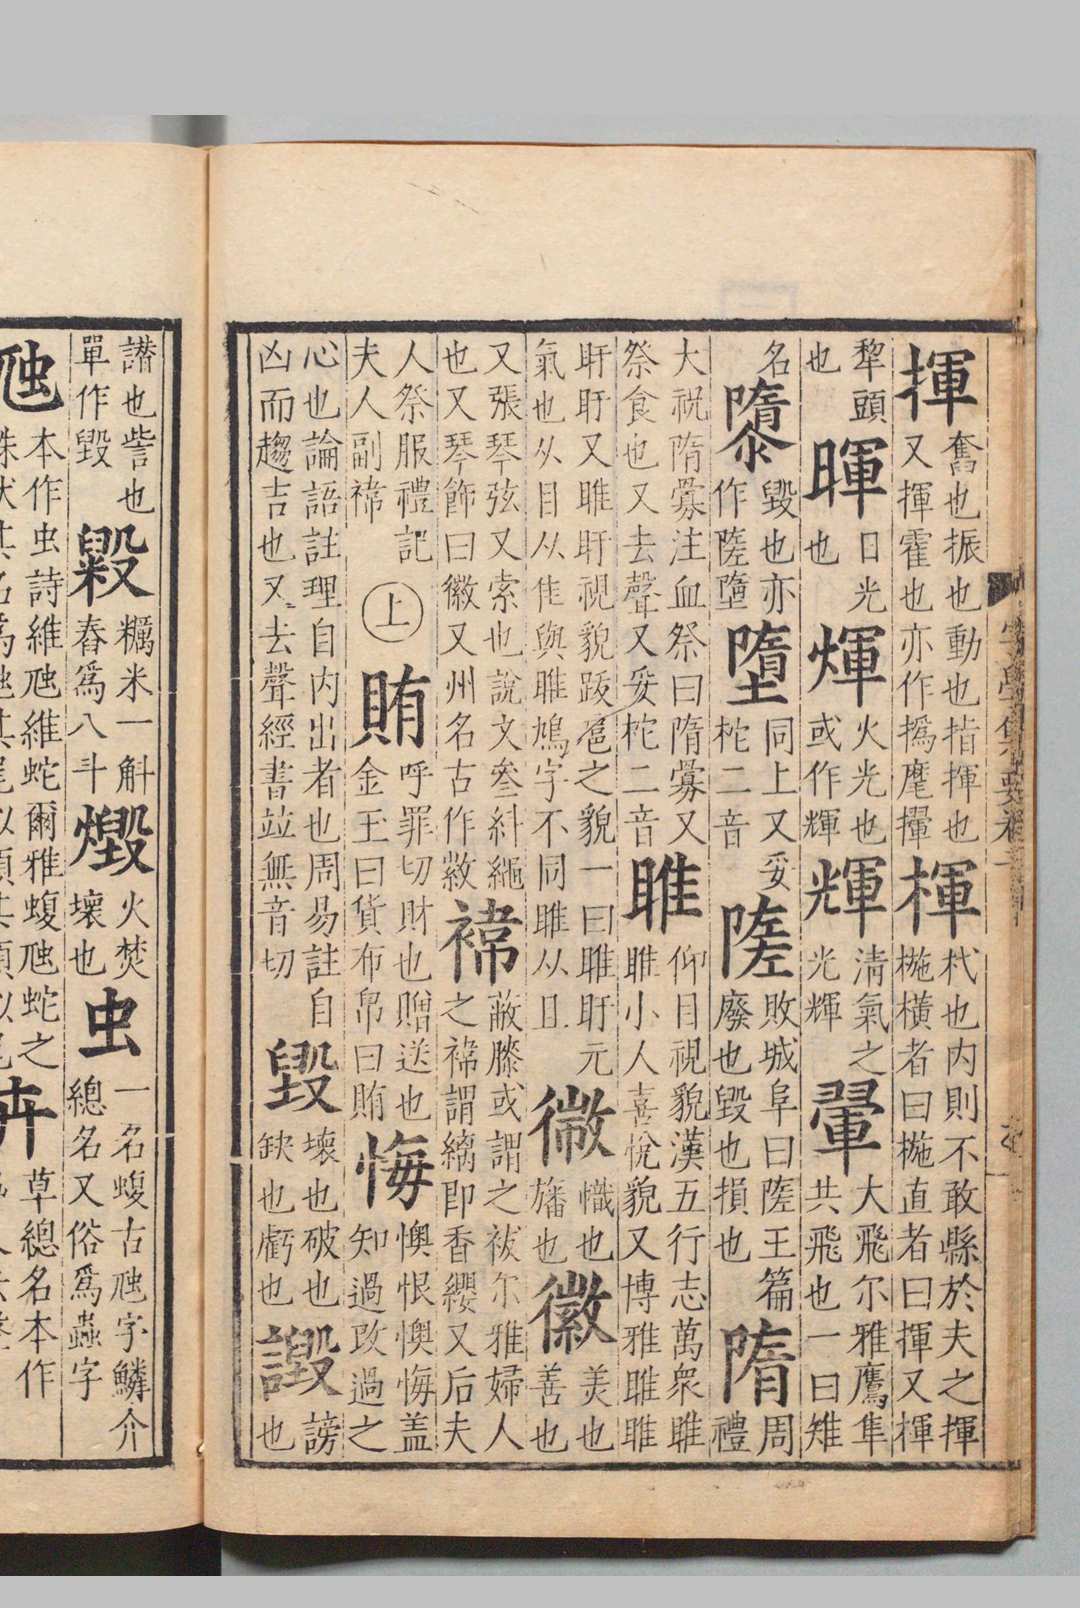 揮奮也振也動也指揮也又揮霍也亦作撝麾攈楎杙也內則不敢縣於夫之楎椸橫者曰椸直者曰揮又楎
犂頭也暉日光也煇火光也或作輝輝清氣之光輝翬大飛尔雅鷹隼共飛也一曰雉
名隳毀也亦作隓墮墮同上又妥柁二音隓敗城阜曰隓王篇廢也毀也損也隋周禮
大祝隋釁注血祭曰隋釁又祭食也又去聲又妥柁二音睢仰目視貌漢五行志萬衆睢睢小人喜悅貌又博雅睢睢
盱盱又睢盱視貌跋扈之貌一曰睢盱元氣也从目从隹與雎鳩字不同雎从且微幟也旛也徽美也善也
又張琴弦又索也說文叄糾繩也又琴飾曰徽又州名古作敚褘蔽膝或謂之袚尔雅婦人之褘謂縭即香纓又后夫
人祭服禮記夫人副褘上賄呼罪切財也贈送也金玉曰貨布帛曰賄悔懊恨懊悔盖知過改過之
心也論語註理自內出者也周易註自凶而趨吉也又去聲經書並無音切毀壞也破也缺也虧也譭謗也
譖也訾也單作毀毇糲米一斛舂為八斗燬火焚壞也虫一名蝮古虺字鱗介總名又俗為蟲字
虺本作虫詩維虺維蛇爾雅蝮虺蛇之卉草總名本作